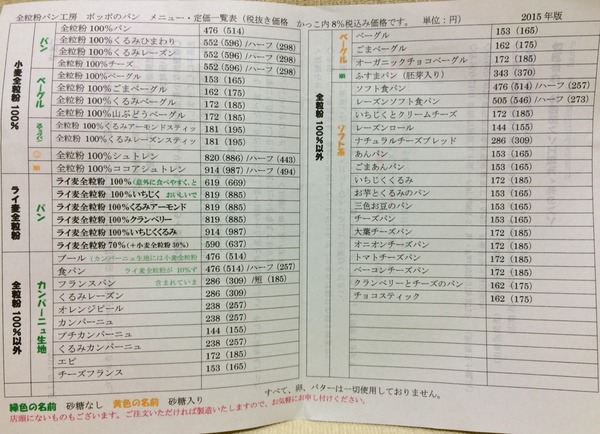 全粒粉パン工房 ポッポのパン メニュー・定価一覧表（税抜き価格 かっこ内8%税込み価格です。 単位：円） 2015年版
小麦全粒粉 100%
パン
全粒粉100%パン 476 (514)
全粒粉100%くるみひまわり 552 (596)/ハーフ (298)
全粒粉100%くるみレーズン 552 (596)/ハーフ (298)
全粒粉100%チーズ 552 (596)/ハーフ (298)
ベーグル
全粒粉100%ベーグル 153 (165)
全粒粉100%ごまベーグル 162 (175)
全粒粉100%くるみベーグル 172 (185)
全粒粉100%山ぶどうベーグル 172 (185)
全粒粉100%くるみアーモンドスティッ 181 (195)
全粒粉100%くるみレーズンスティッ 181 (195)
全粒粉100%シュトレン 820 (886)/ハーフ (443)
全粒粉100%ココアシュトレン 914 (987)/ハーフ (494)
ライ麦全粒粉
パン
ライ麦全粒粉 100%（意外に食べやすくと 619 (669)
ライ麦全粒粉 100%いちじく おいしいで 819 (885)
ライ麦全粒粉 100%くるみアーモンド 819 (885)
ライ麦全粒粉 100%クランベリー 819 (885)
ライ麦全粒粉 100%いちじくくるみ 914 (987)
ライ麦全粒粉 70%（＋小麦全粒粉 30%） 590 (637)
全粒粉 100%以外
カンパーニュ生地
ブール（カンパーニュ生地には小麦全粒粉 476 (514)
食パン ライ麦全粒粉が 10%ず 476 (514)/ハーフ (257)
フランスパン 含まれていま 286 (309)/短 (185)
くるみレーズン 286 (309)
オレンジピール 238 (257)
カンパーニュ 238 (257)
プチカンパーニュ 144 (155)
くるみカンパーニュ 238 (257)
エピ 172 (185)
チーズフランス 162 (175)
全粒粉 100%以外
ベーグル
ベーグル 153 (165)
ごまベーグル 162 (175)
オーガニックチョコベーグル 172 (185)
ふすまパン（胚芽入り） 343 (370)
ソフト系
ソフト食パン 476 (514)/ハーフ (257)
レーズンソフト食パン 505 (546)/ハーフ (273)
いちじくとクリームチーズ 172 (185)
レーズンロール 144 (155)
ナチュラルチーズブレッド 286 (309)
あんパン 153 (165)
ごまあんパン 153 (165)
いちじくくるみ 172 (185)
お芋とくるみのパン 153 (165)
三色お豆のパン 153 (165)
チーズパン 153 (165)
大葉チーズパン 172 (185)
オニオンチーズパン 172 (185)
トマトチーズパン 172 (185)
ベーコンチーズパン 172 (185)
クランベリーとチーズのパン 162 (175)
チョコスティック 162 (175)
すべて、卵、バターは一切使用しておりません。
緑色の名前 砂糖なし 黄色の名前 砂糖入り
店頭にないものもございます。ご注文いただければ製造いたしますので、お気軽にお申し付けください。